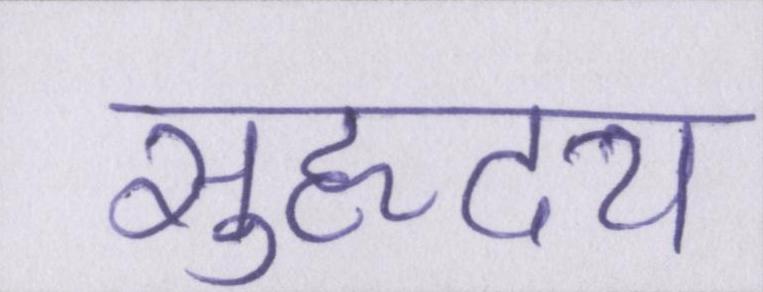 सुहृदय